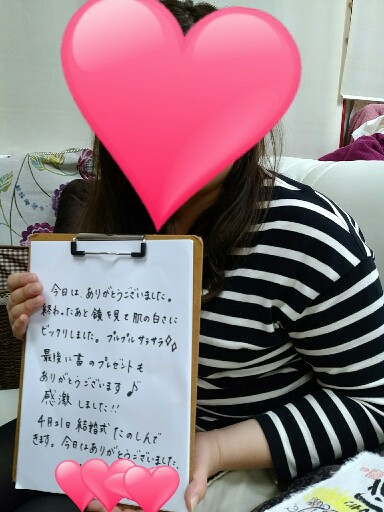 今日は、ありがとうございました。
終わったあと鏡を見て肌の白さに
ビックリしました。プルプルサラサラ
最後に苗のプレゼントも
ありがとうございます♪
感激しました!!
4月21日結婚式たのしんで
きます。今日はありがとうございました。